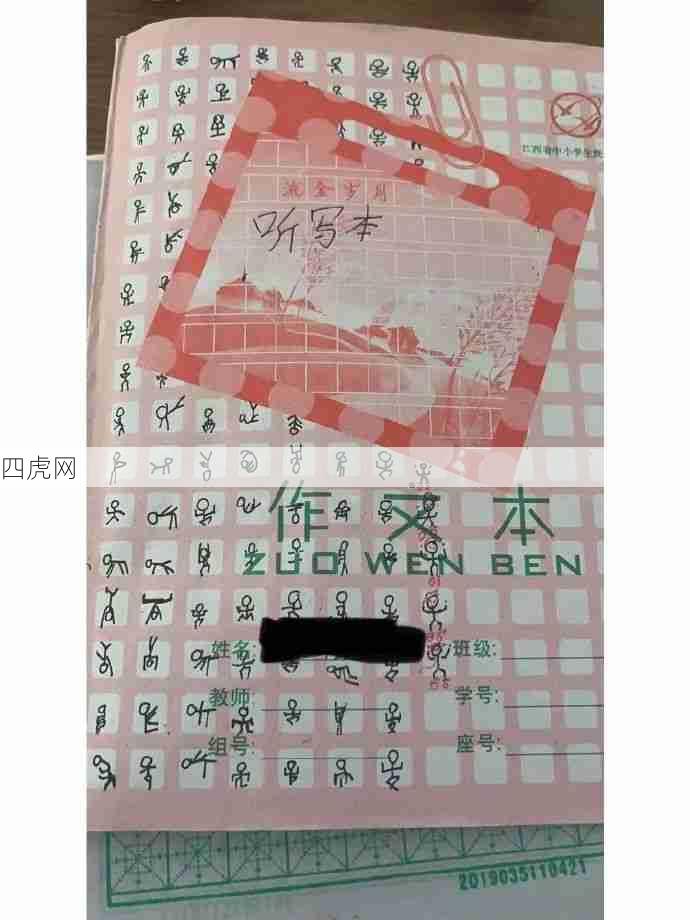 江西省中小学生
流金岁月
听写本
四虎网
作文本
ZUO WEN BEN
姓名:
班级:
教师:
学号:
组号:
座号:
2019035110421